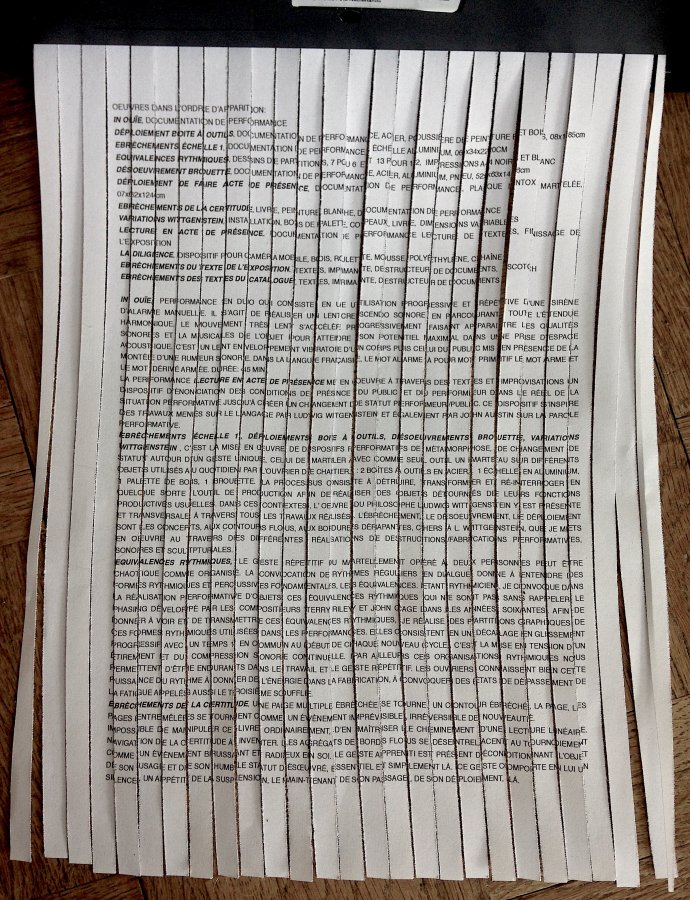 OEUVRES DANS L'ORDRE D'APPARITION:
IN OUÏE, DOCUMENTATION DE PERFORMANCE
DÉPLOIEMENT BOITE À OUTILS, DOCUMENTATION DE PERFORMANCE, ACIER, POUSSIÈRE DE PEINTURE ET BOIS,
EBRÈCHEMENTS ÉCHELLE 1, DOCUMENTATION DE PERFORMANCE, ÉCHELLE ALUMINIUM,
EQUIVALENCES RYTHMIQUES, DESSINS DE PARTITIONS, 7 POUR 6 ET 13 POUR 12, IMPRESSIONS A4 NOIR ET BLANC
DÉSOEUVREMENT BROUETTE, DOCUMENTATION DE PERFORMANCE, ACIER, ALUMINIUM, PNEU,
DÉPLOIEMENT DE FAIRE ACTE DE PRÉSENCE, DOCUMENTATION DE PERFORMANCE, PLAQUE MARTELÉE,
07x62x124cm
EBRÈCHEMENTS DE LA CERTITUDE, LIVRE, PEINTURE BLANHE, DOCUMENTATION DE PERFORMANCE
VARIATIONS WITTGENSTEIN, INSTALLATION, BOIS DE PALETTE, COPEAUX, LIVRE, DIMENSIONS VARIABLES
LECTURE EN ACTE DE PRÉSENCE, DOCUMENTATION DE PERFORMANCE LECTURE DE TEXTES, FINISSAGE DE
L'EXPOSITION
LA DILIGENCE, DISPOSITIF POUR CAMÉRA MOBILE, BOIS, ROULETTE, MOUSSE POLYÉTHYLÈNE, CHAÎNE
EBRÈCHEMENTS DU TEXTE DE L'EXPOSITION, TEXTES, IMPIMANTE, DESTRUCTEUR DE DOCUMENTS, SCOTCH
EBRÈCHEMENTS DES TEXTES DU CATALOGUE, TEXTES, IMRIMANTE, DESTRUCTEUR DE DOCUMENTS
IN OUÏE, PERFORMANCE EN DUO QUI CONSISTE EN UE UTILISATION PROGRESSIVE ET RÉPÉTITIVE D'UNE SIRÈNE
D'ALARME MANUELLE. IL S'AGIT DE RÉALISER UN LENT CRESCENDO SONORE EN PARCOURANT TOUTE L'ÉTENDUE
HARMONIQUE. LE MOUVEMENT TRÈS LENT S'ACCÉLÉE PROGRESSIVEMENT FAISANT APPARAITRE LES QUALITÉS
SONORES ET LA MUSICALES DE L'OBJET POUR ATTEIDRE SON POTENTIEL MAXIMAL DANS UNE PRISE D'ESPACE
ACOUSTIQUE. C'EST UN LENT ENVELOPPEMENT VIBRATOIE D'UN COEPS PUIS CELUI DU PUBLIC MIS EN PRÉSENCE DE LA
MONTÉE D'UNE RUMEUR SONORE. DANS LA LANGUE FRANÇAISE, LE MOT ALARME A POUR MOT PRIMITIF LE MOT ARME ET
LE MOT DÉRIVÉ ARMÉE. DURÉE: 45 MIN.
LA PERFORMANCE LECTURE EN ACTE DE PRÉSENCE ME EN OEUVRE À TRAVERS DES TEXTES ET IMPROVISATIONS UN
DISPOSITIF D'ENONCIATION DES CONDITIONS DE PRÉSENCE DU PUBLIC ET DU PERFORMEUR DANS LE RÉEL DE LA
SITUATION PERFORMATIVE JUSQU'À CRÉER UN CHANGEMENT DE STATUT PERFORMEUR/PUBLIC. CE DISPOSITIF S'INSPIRE
DES TRAVAUX MENÉS SUR LE LANGAGE PAR LUDVIG WITGENSTEIN ET ÉGALEMENT PAR JOHN AUSTIN SUR LA PAROLE
PERFORMATIVE.
EBRÈCHEMENTS ÉCHELLE 1, DÉPLOIEMENTS BOIE À OUTILS, DÉSOEUVREMENTS BROUETTE, VARIATIONS
WITTGENSTEIN, C'EST LA MISE EN OEUVRE DE DISPOSITIFS PERFORMATIFS DE MÉTAMORPHOSE, DE CHANGEMENT DE
STATUT AUTOUR D'UN GESTE UNIQUE, CELUI DE MARTILER AVEC COMME SEUL OUTIL UN MARTEAU SUR DIFFÉRENTS
OBJETS UTILISÉS AU QUOTIDIEN PAR L'OUVRIER DE CHATIER : 2 BOÎTES À OUTILS EN ACIER, 1 ÉCHELLE EN ALUMINIUM,
1 PALETTE DE BOIS, 1 BROUETTE. LA PROCESSUS CONSISTE À DÉTRUIRE, TRANSFORMER ET RÉ-INTERROGER EN
QUELQUE SORTE L'OUTIL DE PRODUCTION AFIN DE RÉALISER DES OBJETS DÉTOURNÉS DE LEURS FONCTIONS
PRODUCTIVES USUELLES. DANS CES CONTEXTES, L'OEUVRE DU PHILOSOPHE LUDWIG WITTGENSTEIN Y EST PRÉSENTE
ET TRANSVERSALE À TRAVERS TOUS LES TRAVAUX RÉALISÉS. L'ÉBRÈCHEMENT, LE DÉSOEUVREMENT, LE DÉPLOIEMENT
SONT LES CONCEPTS, AUX CONTOURS FLOUS, AUX BORDURES DÉRAPANTES, CHERS À L. WITTGENSTEIN, QUE JE METS
EN OEUVRE AU TRAVERS DES DIFFÉRENTES RÉALISATIONS DE DESTRUCTIONS/FABRICATIONS PERFORMATIVES,
SONORES ET SCULTPTURALES.
EQUIVALENCES RYTHMIQUES, LE GESTE RÉPÉTITIF DU MARTELLEMENT OPÉRÉ À DEUX PERSONNES PEUT ÊTRE
CHAOTIQUE COMME ORGANISÉ. LA CONVOCATION DE RYTHMES RÉGULIERS EN DIALGUE DONNE À ENTENDRE DES
FORMES RYTHMIQUES ET PERCUSSIVES FONDAMENTALES, LES ÉQUIVALENCES. ÉTANT RYTHMICIEN, JE CONVOQUE DANS
LA RÉALISATION PERFORMATIVE D'OBJETS CES ÉQUIVALENCES RYTHMIQUES QUI NE SONT PAS SANS RAPPELER LE
PHASING DÉVELOPPÉ PAR LES COMPOSITEURS TERRY RILEY ET JOHN CAGE DANS LES ANNÉES SOIXANTES. AFIN DE
DONNER À VOIR ET DE TRANSMETTRE CES ÉQUIVALENCES RYTHMIQUES, JE RÉALISE DES PARTITIONS GRAPHIQUES DE
CES FORMES RYTHMIQUES UTILISÉES DANS LES PERFORMANCES. ELLES CONSISTENT EN UN DÉCALAGE EN GLISSEMENT
PROGRESSIF AVEC UN TEMPS 1 EN COMMUN AU DÉBUT DE CHAQUE NOUVEAU CYCLE. C'EST LA MISE EN TENSION D'UN
ÉTIREMENT ET DU COMPRESSION SONORE CONTINUELLE. PAR AILLEURS CES ORGANISATIONS RYTHMIQUES NOUS
PERMETTENT D'ÊTRE ENDURANTS DANS LE TRAVAIL ET LE GESTE RÉPÉTITIF. LES OUVRIERS CONNAISSENT BIEN CETTE
PUISSANCE DU RYTHME À DONNER DE L'ÉNERGIE DANS LA FABRICATION, À CONVOQUER DES ÉTATS DE DÉPASSEMENT DE
LA FATIGUE APPELÉS AUSSI LE TROISIÈME SOUFFLE.
EBRÈCHEMENTS DE LA CERTITUDE, UNE PAGE MULTIPLE ÉBRÉCHÉE SE TOURNE, UN CONTOUR ÉBRÉCHÉ, LA PAGE, LES
PAGES ENTREMÊLÉES SE TOURNENT COMME UN ÉVÈNEMENT IMPRÉVISIBLE, IRRÉVERSIBLE DE NOUVEAUTÉ.
IMPOSSIBLE DE MANIPULER CE LIVRE ORDINAIREMENT, D'EN MAÎTRISER LE CHEMINEMENT D'UNE LECTURE LINÉAIRE.
NAVIGATION DE LA CERTITUDE À INVENTER. LES AGRÉGATS DE BORDS FLOUS SE DÉSENTRELACENT AU TOURNOIEMENT
COMME UN ÉVÈNEMENT BRUISSANT ET RADIEUX EN SOI. LE GESTE APPRENTI EST PRÉSENT DÉCONDITIONNANT L'OBJET
DE SON USAGE ET DE SON HUMBLE STATUT DÉSŒUVRÉ, ESSENTIEL ET SIMPLEMENT LÀ. CE GESTE COMPORTE EN LUI UN
SILENCE, UN APPÉTIT DE LA SUSPENSION, LE MAIN-TENANT DE SON PASSAGE, DE SON DÉPLOIEMENT, LÀ.